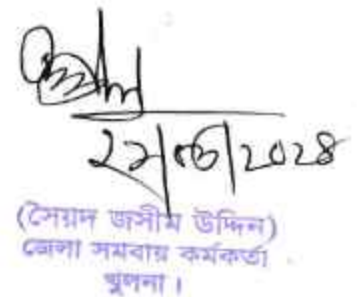 ২০২৪
(সৈয়দ জসীম উদ্দিন)
জেলা সমবায় কর্মকর্তা
খুলনা।